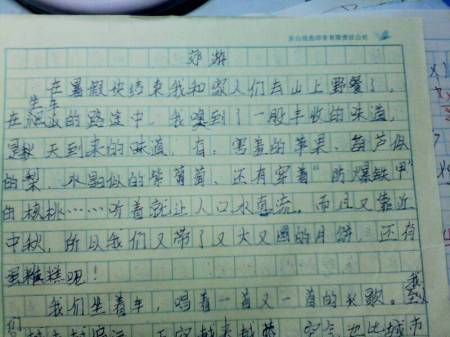 郊游
在暑假快结束我和家人们去山上野餐了。
坐车
在的路途中，我嗅到了一股丰收的味道，
是秋天到来的味道，有：害羞的苹果、葫芦似
的梨、水晶似的紫葡萄、还有穿着“防爆铁甲”
的核桃……听着就让人口水直流。而且又靠近
中秋，所以我们又带了又大又圆的月饼，还有
蛋糕呢！
我们坐着车，唱着一首又一首的歌。我
们越来越空气也比城市